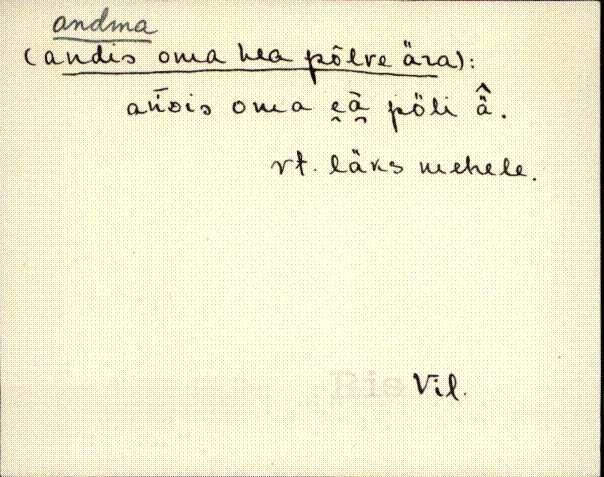 andma
(andis oma hea põlve ära):
an̄dis oma e̯à̯ põli ä̂.
vt. läks mehele.
Ris Vil.